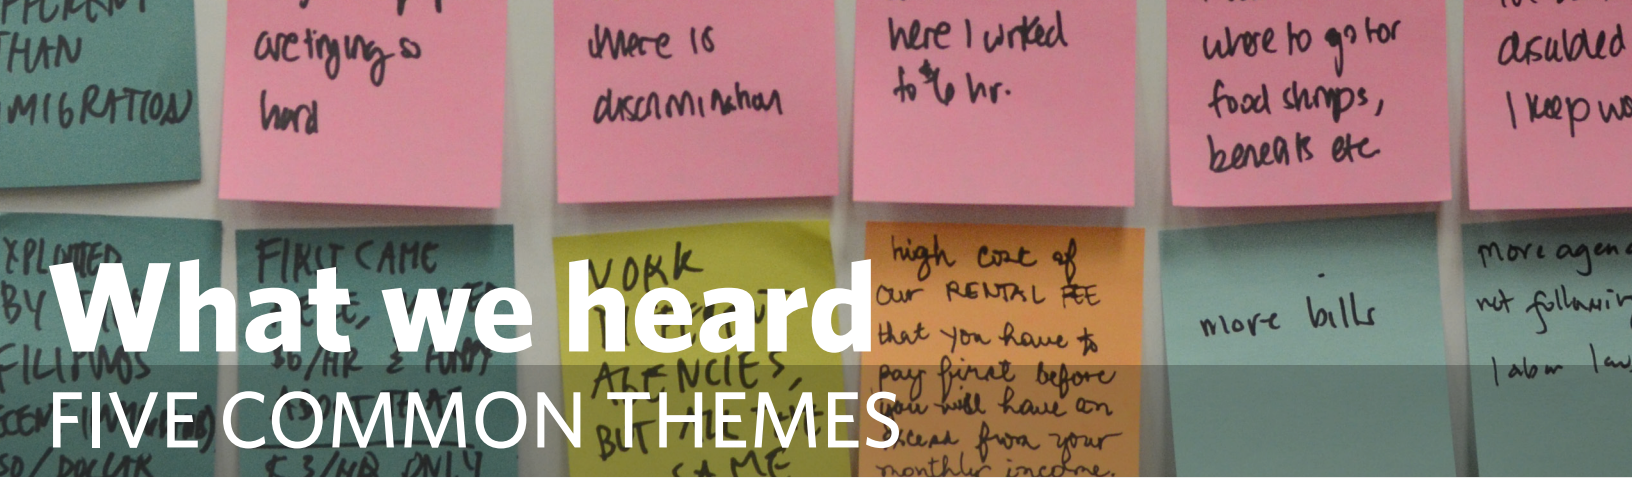 THAN
MIGRATION
are trying so
hard
there is
discrimination
here I worked
to $6 hr.
where to go for
food shmps,
benefits etc
disabled
I keep wo
XPLOITED
BY
FILIPINOS
FIRST CAME
$6/HR &
$3/HR ONLY
WORK
AGENCIES,
BUT ARE THE
SAME
high cost of
our RENTAL FEE
that you have to
pay first before
you will have an
from your
monthly income.
more bills
more agen
not followin
labor law
What we heard
FIVE COMMON THEMES